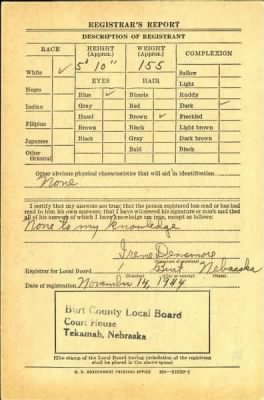 REGISTRAR'S REPORT
DESCRIPTION OF REGISTRANT
RACE
HEIGHT (Approx.)
WEIGHT (Approx.)
COMPLEXION
5' 10"
155
White ✓
Sallow
EYES
HAIR
Light
Negro
Blue ✓
Blonde
Ruddy
Indian
Gray
Red
Dark ✓
Hazel
Brown ✓
Freckled
Filipino
Brown
Black
Light brown
Japanese
Black
Gray
Dark brown
Other Oriental
Bald
Black
Other obvious physical characteristics that will aid in identification
None
I certify that my answers are true; that the person registered has read or has had
read to him his own answers; that I have witnessed his signature or mark and that
all of his answers of which I have knowledge are true, except as follows:
None to my knowledge
Irene Densmore
(Signature of registrar)
Registrar for Local Board 1 Burt Nebraska
(Number) (City or county) (State)
Date of registration November 14, 1944
Burt County Local Board
Court House
Tekamah, Nebraska
(The stamp of the Local Board having jurisdiction of the registrant
shall be placed in the above space)
U. S. GOVERNMENT PRINTING OFFICE